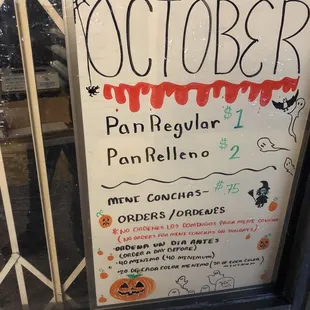 OCTOBER
Pan Regular $1
Pan Relleno $2
MINI CONCHAS- $.75
ORDERS/ORDENES
* NO ORDENES LOS DOMINGOS PARA MINI CONCHAS
(NO ORDERS FOR MINI CONCHAS ON SUNDAYS)
• ORDENA UN DIA ANTES
(ORDER A DAY BEFORE)
• 40 MINIMO (40 MINIMUM)
• 20 DE CADA COLOR MINIMO (20 OF EACH COLOR